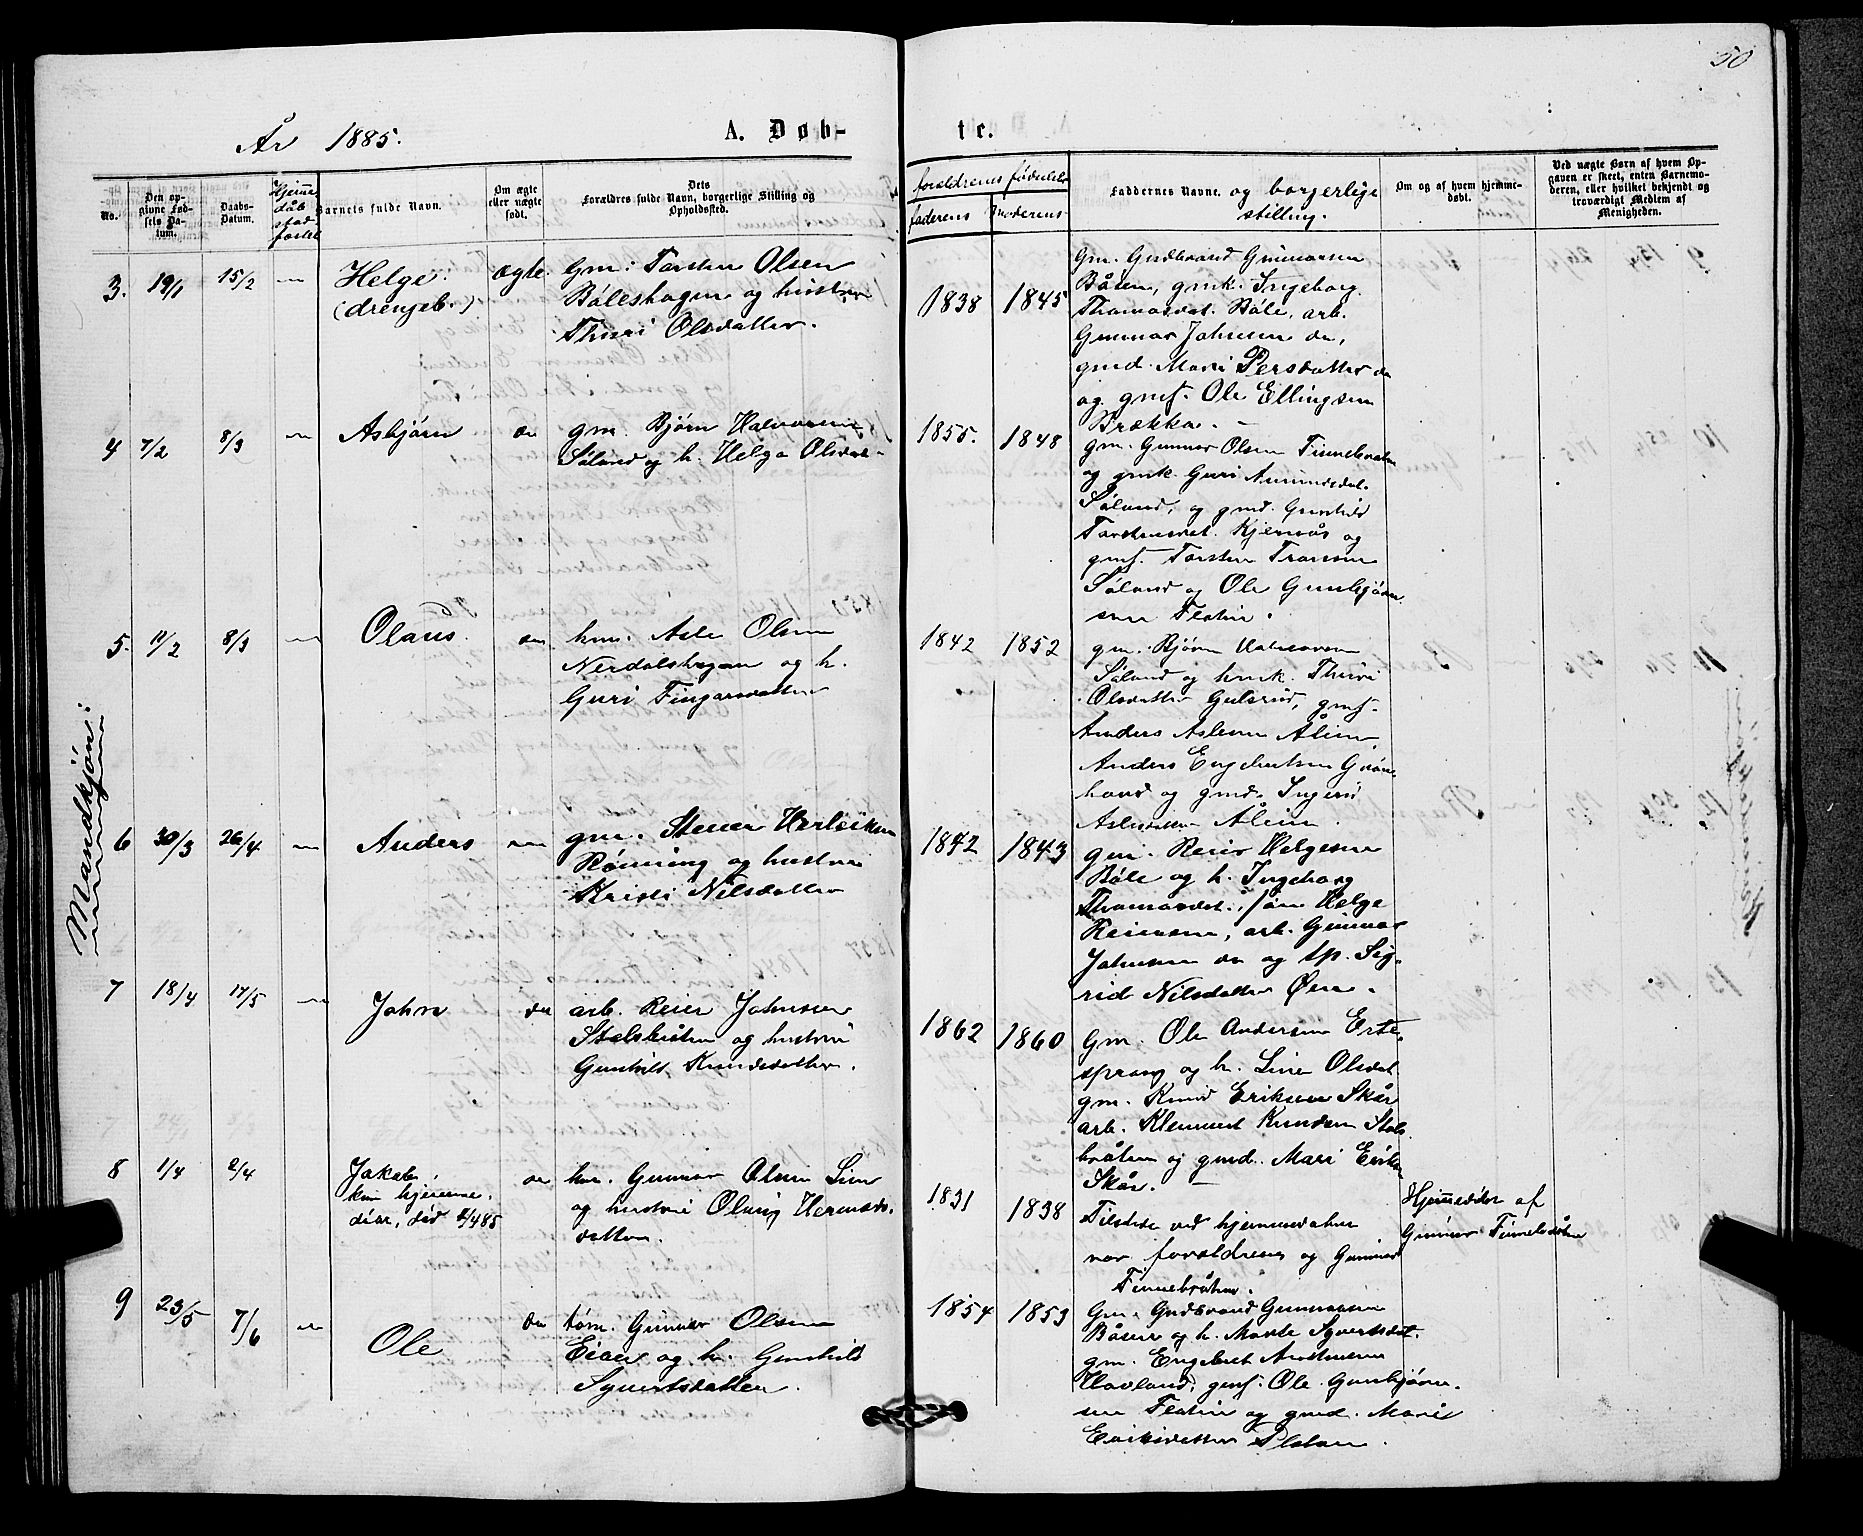 50
År 1885.
A. Døb-
te.
No.
Den op-
givne Fød-
sels Da-
tum.
Daabs-
Datum.
Hjemme
dåb
stad
fæstet
Barnets fulde Navn.
Om ægte
eller uægte
født.
Dets
Forældres fulde Navn, borgerlige Stilling og
Opholdssted.
forældrenes fødselsår
faderens
moderens
Faddernes Navne. og borgerlige
stilling.
Om og af hvem hjemme-
døbt.
Ved uægte Børn af hvem Op-
gaven er skeet, enten Barnemo-
deren, eller hvilket bekjendt og
troværdigt Medlem af
Menigheden.
Mandkjön:
3. 19/1 15/2 — Helge.
(drengeb.)
ægte.
Gm: Torsten Olsen
Båleshagen og hustru
Thuri Olsdatter.
1838 1845
Gm. Gudbrand Gunnarsen
Båsen, gmk. Ingeborg
Thomasdat. Båle, arb.
Gunnar Johnsen do,
gmd. Mari Persdatter do
og gmf. Ole Ellingsen
Brække. —
4 7/2 8/3 — Asbjørn do
gm. Bjørn Halvorsen
Såland og h. Helga Olsdat-
1855. 1848
gm. Gunnar Olsen Finnebråten
og gmk. Guri Amundsdat.
Såland, og gmd. Gunhild
Torstensdat. Kjernås og
gmf. Torsten Tronsen
Såland og Ole Gunbjørn-
sen Flatin.
5. 11/2 8/3 — Olaus. do
hm. Asle Olsen
Nerdalshagen og h.
Guri Fingarsdatter
1842 1852
gm. Bjørn Halvorsen
Såland og hmk. Thuri
Olsdatter Gulsrud, gmf.
Anders Aslesen Ålien,
Anders Engebretsen Grøn-
hovd og gmd. Ingerid
Aslesdatter Ålien.
6 30/3 26/4 — Anders —
gm. Stener Herleiksen
Rønning og hustru
Kristi Nilsdatter
1842 1843
gm. Reier Helgesen
Båle og h. Ingeborg
Thomasdat., søn Helge
Reiersen, arb. Gunnar
Johnsen do og tp. Sig-
rid Nilsdatter Øen.
7 18/4 17/5 — John do
arb. Reier Johnsen
Stalsbråten og hustru
Gunhild Knudsdatter.
1862 1860
Gm. Ole Andersen Erte-
sprang og h. Line Olsdat
gm. Knud Eriksen Skår
arb. Klemmet Knudsen Stals-
bråten og gmd. Mari Eriksd
Skår. —
8 1/4 2/4 Jakob,
kun hjemme-
døbt, død 2/4 85
do
hm. Gunnar Olsen Lien
og hustru Olaug Hermods-
datter.
1831 1838
Tilstede ved hjemmedåben
var forældrene og Gunnar
Finnebråten.
Hjemmedøbt af
Gunnar Finnebråten
9 23/5 7/6 — Ole do
tøm. Gunnar Olsen
Eiaen og h. Gunhild
Syvertsdatter.
1854 1853
Gm. Gudbrand Gunnarsen
Båsen og h. Marte Syvertsdat.
gm. Engebret Arnesen
Havland, gmf. Ole Gunbjørn-
sen Flatin og gmd. Mari
Eriksdatter Pladsen.